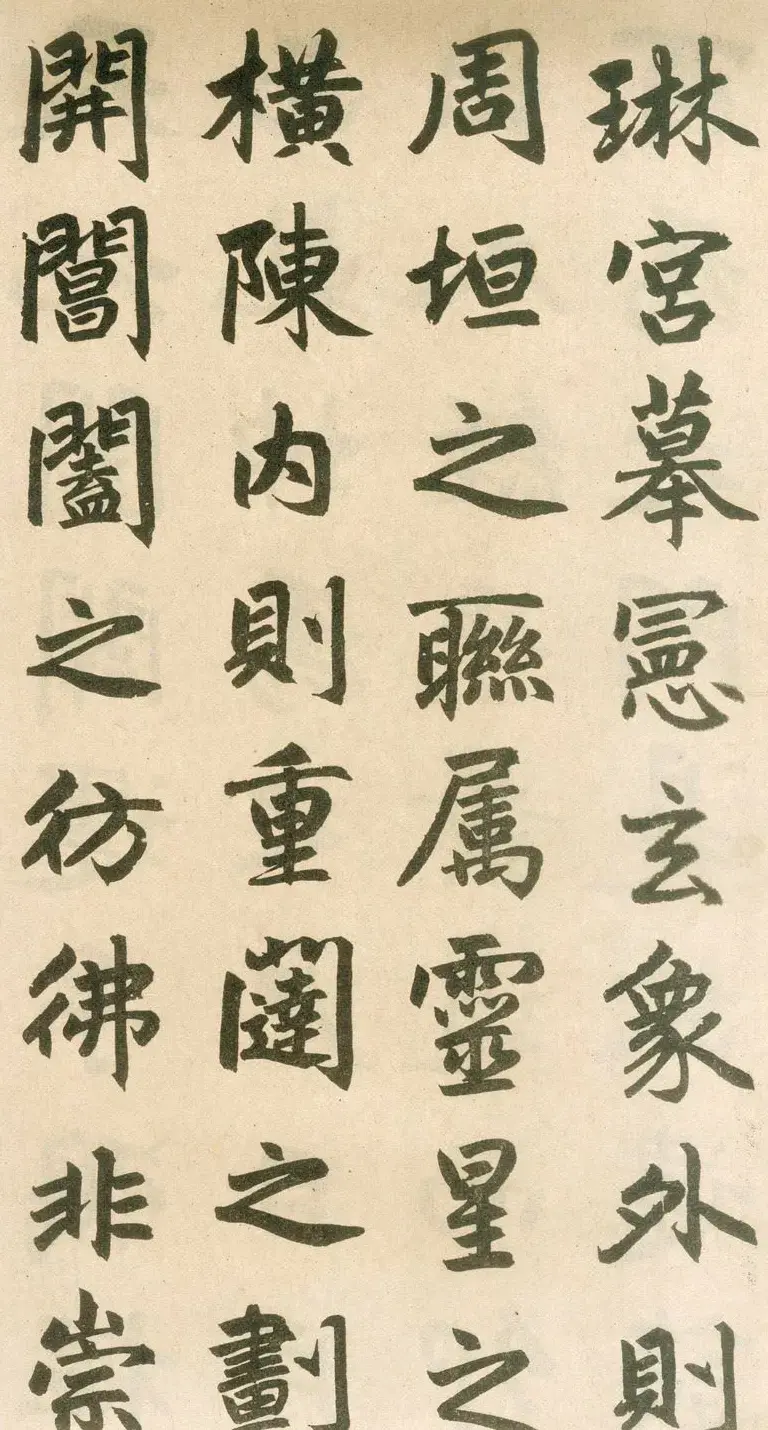 琳宮摹憲玄象外則
周垣之聯属靈星之
橫陳内則重闥之劃
開闓闔之彷彿非崇